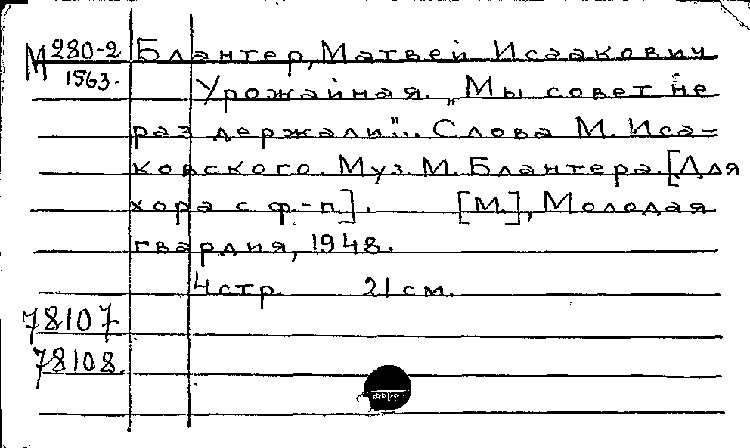 М 280-2 Блантер, Матвей Исаакович
1563. Урожайная. „Мы совет не
раз держали"... Слова М. Иса-
ковского. Муз. М. Блантера. [Для
хора с ф.-п.]. [М.], Молодая
гвардия, 1948.
4 стр. 21 см.
78107
78108.